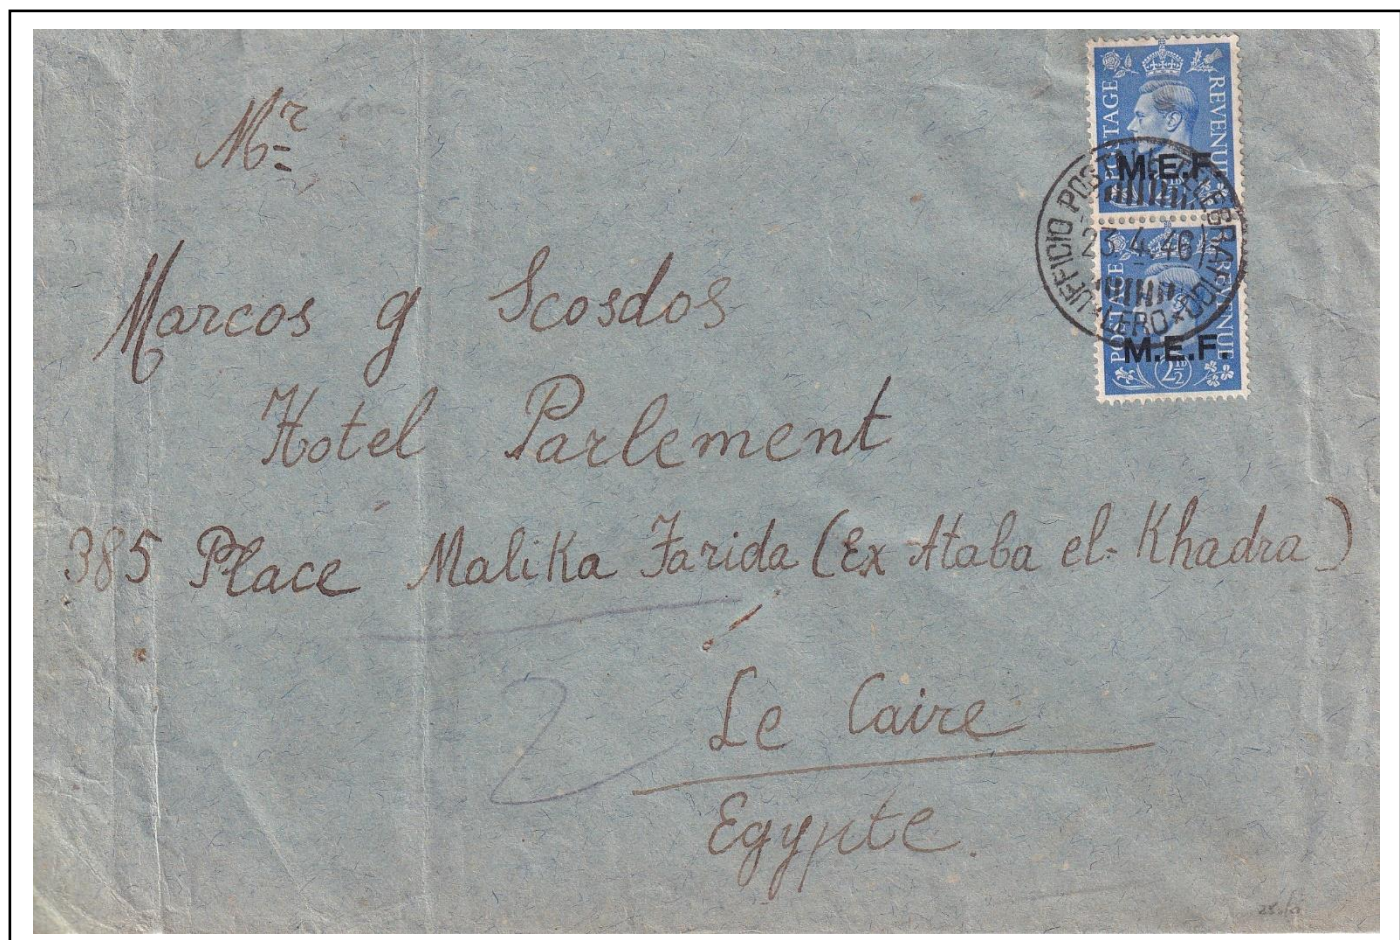 Mr
Marcos g Scosdos
Hotel Parlement
385 Place Malika Farida (Ex Ataba el-Khadra)
Le Caire
Egypte.
2
POSTAGE REVENUE
M.E.F.
UFFICIO POSTALE TELEGRAFICO
23.4.46
LERO
POSTAGE REVENUE
M.E.F.
2½D